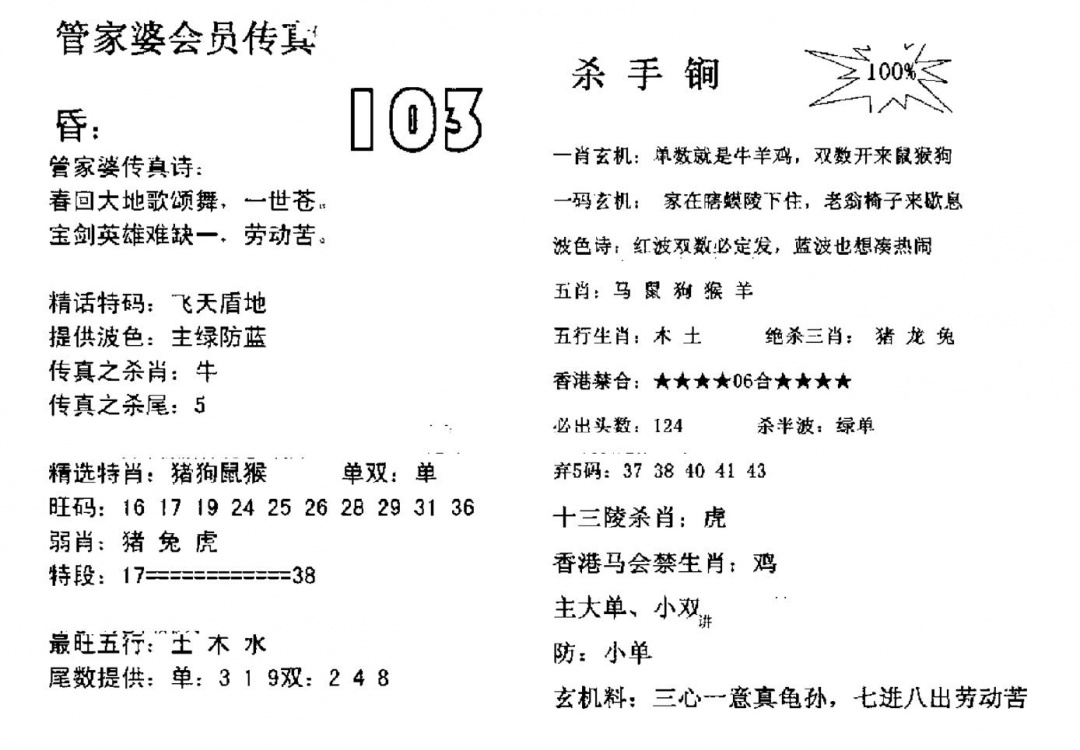 管家婆会员传真
103
昏：
管家婆传真诗：
春回大地歌颂舞，一世苍。
宝剑英雄难缺一，劳动苦。
精话特码：飞天盾地
提供波色：主绿防蓝
传真之杀肖：牛
传真之杀尾：5
精选特肖：猪狗鼠猴 单双：单
旺码：16 17 19 24 25 26 28 29 31 36
弱肖：猪 兔 虎
特段：17============38
最旺五行：土 木 水
尾数提供：单：3 1 9双：2 4 8
杀手锏
100%
一肖玄机：单数就是牛羊鸡，双数开来鼠猴狗
一码玄机： 家在瞎蟆陵下住，老翁椅子来歇息
波色诗：红波双数必定发，蓝波也想凑热闹
五肖：马 鼠 狗 猴 羊
五行生肖：木 土 绝杀三肖： 猪 龙 兔
香港禁合：★★★★06合★★★★
必出头数：124 杀半波：绿单
弃5码：37 38 40 41 43
十三陵杀肖：虎
香港马会禁生肖：鸡
主大单、小双讲
防：小单
玄机料：三心一意真龟孙，七进八出劳动苦